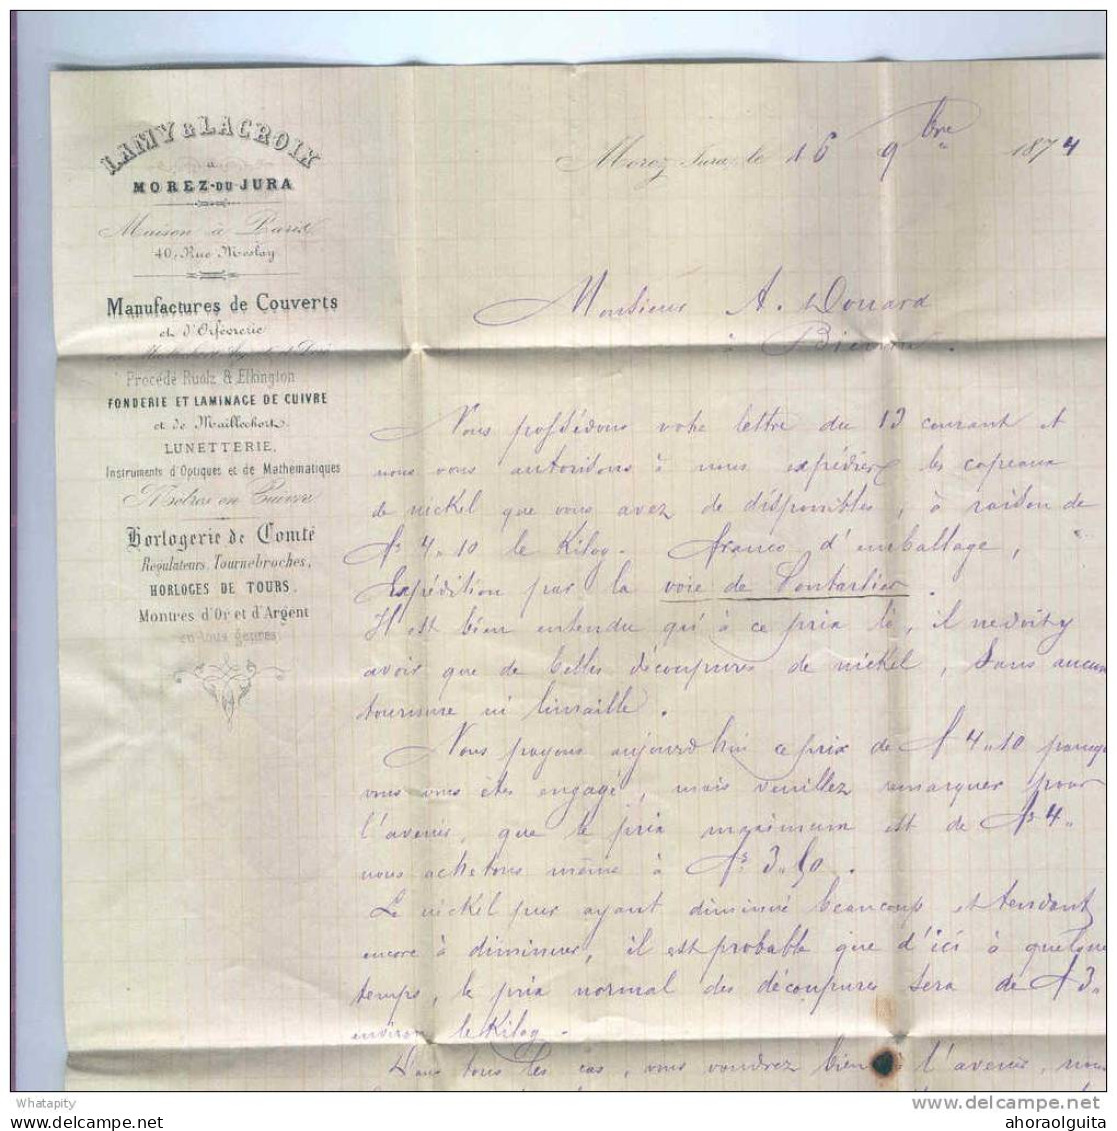 LAMY & LACROIX
A
MOREZ-DU-JURA
Maison à Paris
40, Rue Meslay
Manufactures de Couverts
et d'Orfèvrerie
Procédé Ruolz & Elkington
FONDERIE ET LAMINAGE DE CUIVRE
et de Maillechort.
LUNETTERIE,
Instruments d'Optiques et de Mathématiques
Mètres en Cuivre
Horlogerie de Comté
Régulateurs, Tournebroches,
HORLOGES DE TOURS.
Montres d'Or et d'Argent
en tous genres.
Morez-Jura, le 16 9bre 1874
Monsieur A. Donard
à Bienne.
Nous possédons votre lettre du 13 courant et
nous vous autorisons à nous expédier les copeaux
de nickel que vous avez de disponibles, à raison de
frs 4.10 le Kilog. franco d'emballage,
Expédition par la voie de Pontarlier.
Il est bien entendu qu'à ce prix là, il ne doit y
avoir que de belles découpures de nickel, sans aucune
tournure ni limaille.
Nous payons aujourd'hui ce prix de fr 4.10 parceque
vous vous êtes engagé, mais veuillez remarquer pour
l'avenir, que le prix maximum est de frs 4.
nous achetons même à frs 3.50.
Le nickel pur ayant diminué beaucoup et tendant
encore à diminuer, il est probable que d'ici à quelque
temps, le prix normal des découpures sera de fr 3.
environ le Kilog.
Dans tous les cas, vous voudrez bien l'avenir, nous
Whatapity
delcampe.net
ahoraolguita